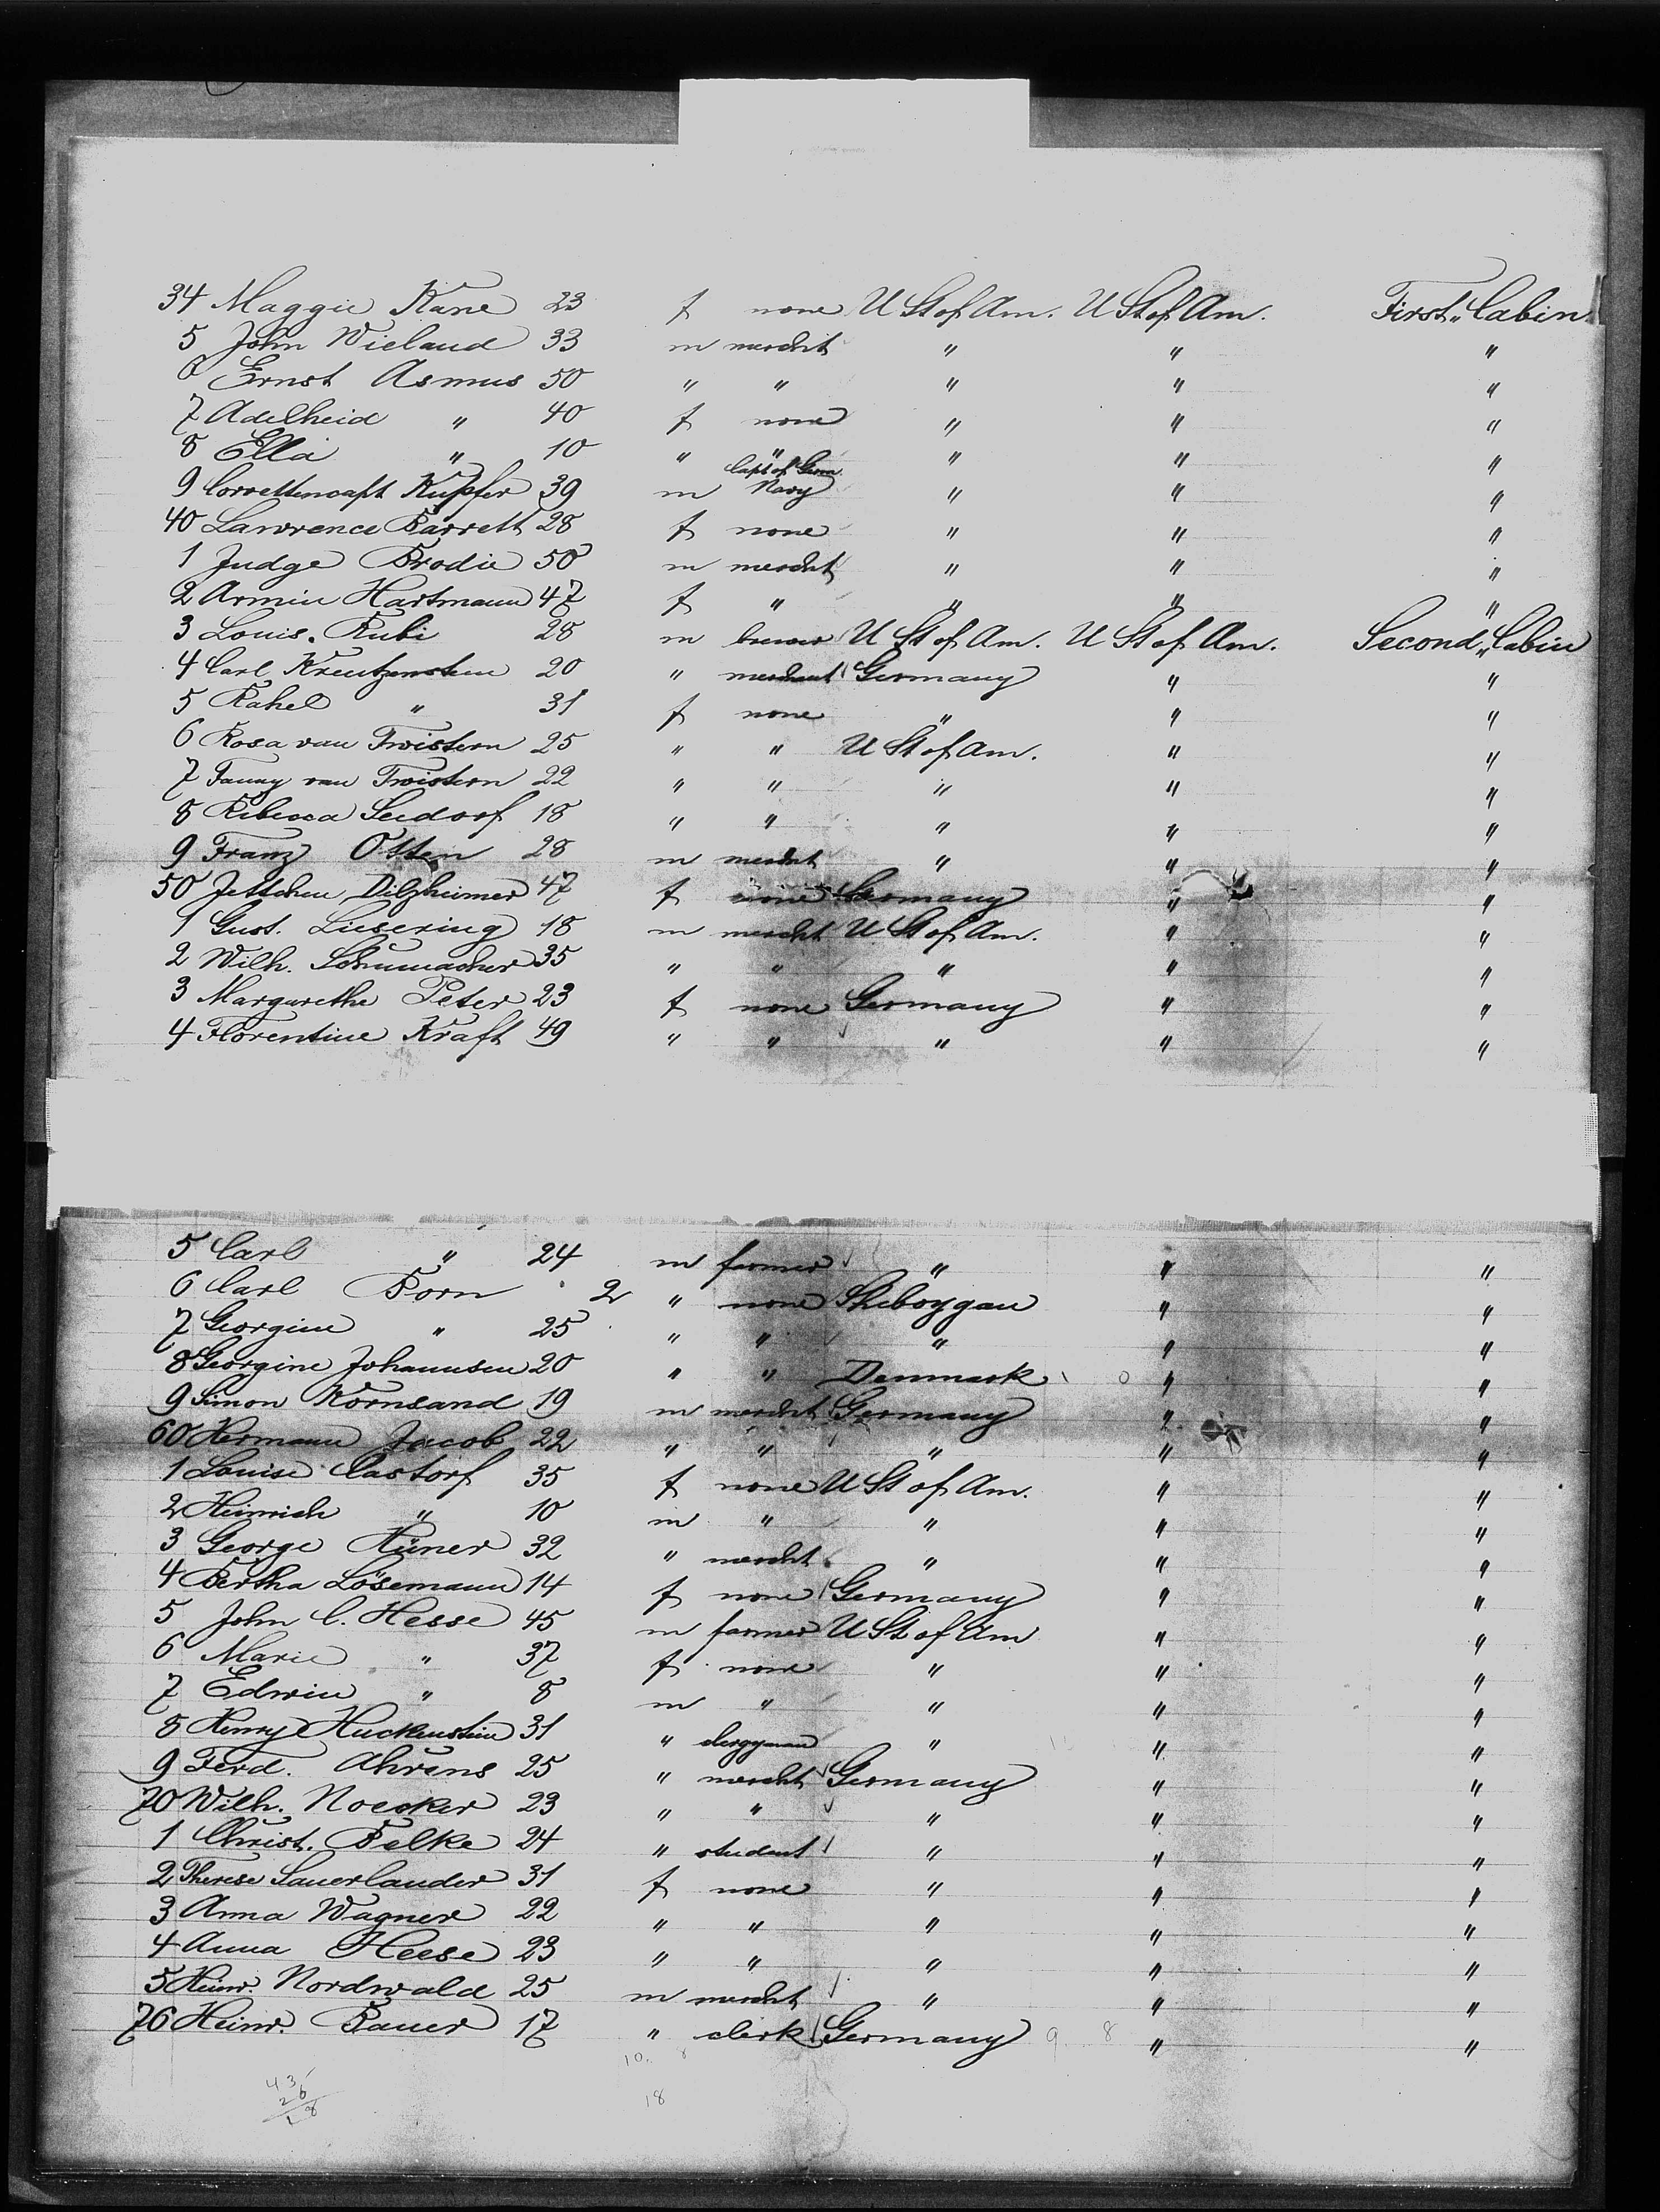 34 Maggie Kane 23 f none U St of Am. U St of Am. First „ Cabin
5 John Wieland 33 m mercht " " "
6 Ernst Asmus 50 " " " " "
7 Adelheid " 40 f none " " "
8 Ella " 10 " " " " "
9 Corvettencapt Kupfer 39 m Capt of Germ Navy " " "
40 Lawrence Barrett 28 f none " " "
1 Judge Brodie 50 m mercht " " "
2 Armin Hartmann 47 f " " " "
3 Louis. Rubi 28 m U St of Am. U St of Am. Second „ Cabin
4 Carl Kreutzenstein 20 " merchant Germany " "
5 Rahel " 31 f none " " "
6 Rosa van Twistern 25 " " U St of Am. " "
7 Fanny van Twistern 22 " " " " "
8 Rebecca Seedorf 18 " " " " "
9 Franz Otten 28 m mercht " " "
50 Jettchen Dilzheimer 47 f none Germany " "
1 Gust. Liesering 18 m mercht U St of Am. " "
2 Wilh. Schumacher 35 " " " " "
3 Margarethe Peter 23 f none Germany " "
4 Florentine Kraft 49 " " " " "
5 Carl " 24 m farmer " " "
6 Carl Born 2 " none Sheboygan " "
7 Georgine " 25 " " " " "
8 Georgine Johannsen 20 " " Denmark " "
9 Simon Kornsand 19 m mercht Germany " "
60 Hermann Jacob 22 " " " " "
1 Louise Castorf 35 f none U St of Am. " "
2 Heinrich " 10 m " " " "
3 George Hüner 32 " mercht " " "
4 Bertha Lösemann 14 f none Germany " "
5 John C. Hesse 45 m farmer U St of Am " "
6 Marie " 37 f none " " "
7 Edwin " 8 m " " " "
8 Henry Huckenstein 31 " clergyman " " "
9 Ferd. Ahrens 25 " mercht Germany " "
70 Wilh. Noecker 23 " " " " "
1 Christ. Belke 24 " student " " "
2 Therese Sauerlander 31 f none " " "
3 Anna Wagner 22 " " " " "
4 Anna Heese 23 " " " " "
5 Heinr. Nordwald 25 m mercht " " "
76 Heinr. Bauer 17 " clerk Germany 9 8 " "
10. 8
43
26
18
18